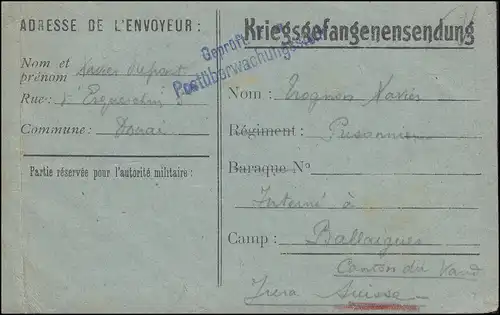 ADRESSE DE L'ENVOYEUR :
Nom et
prénom Xavier Dupont
Rue : d'Esquerchin
Commune : Douai
Partie réservée pour l'autorité militaire :
Kriegsgefangenensendung
Geprüft
Postüberwachungsstelle
Nom : Trognon Xavier
Régiment : Prisonnier
Baraque No
Interné à
Camp : Ballaigues
Canton du Vaud
Jura Suisse